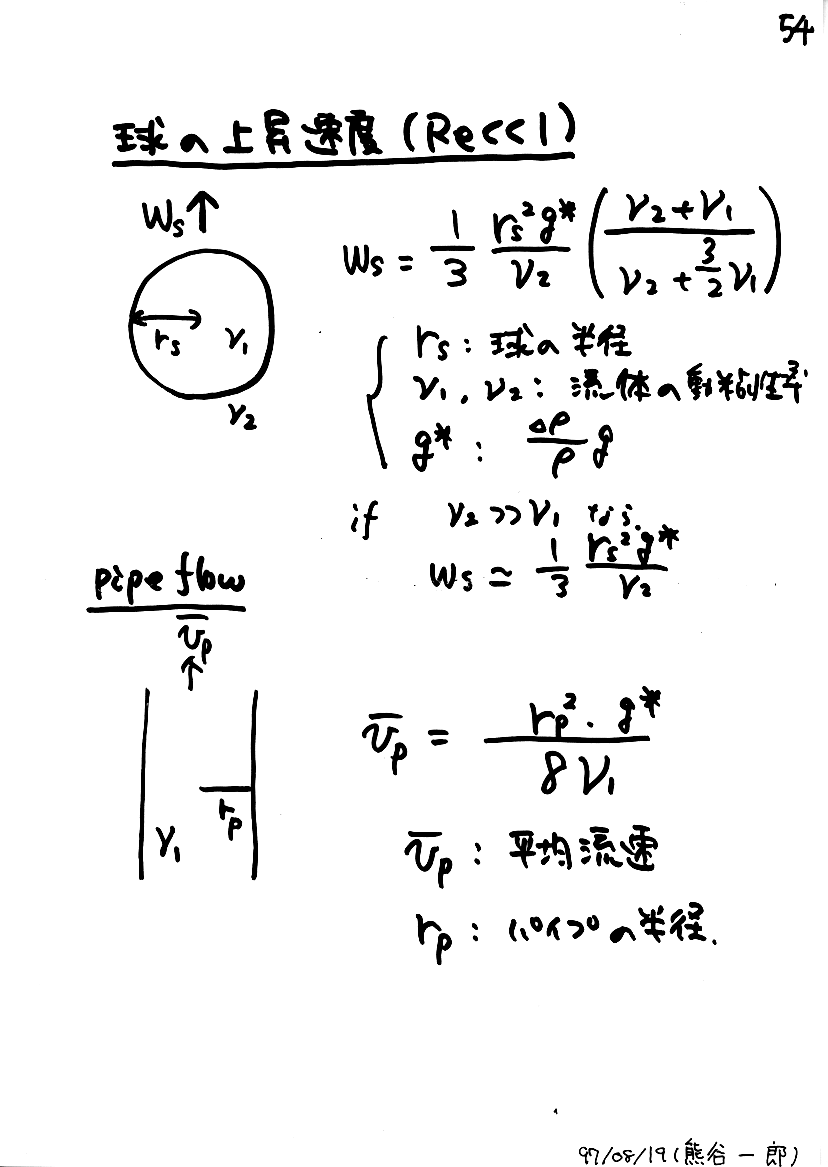 54
球の上昇速度 (Re<<1)
Ws↑
Ws = 1/3 rs²g*/ν2 ( (ν2+ν1)/(ν2+3/2ν1) )
rs
ν1
ν2
rs : 球の半径
ν1, ν2 : 流体の動粘性率
g* : Δρ/ρ g
if ν2>>ν1 なら
Ws ≃ 1/3 rs²g*/ν2
pipe flow
v̄p
↑
rp
ν1
v̄p = rp²・g*/8ν1
v̄p : 平均流速
rp : パイプの半径.
97/08/19(熊谷一郎)